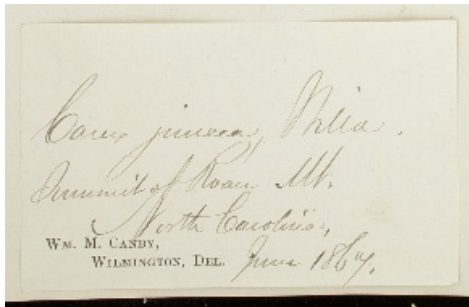 Carex juncea, Willd.
Summit of Roan Mt.
North Carolina,
WM. M. CANBY,
WILMINGTON, DEL. June 1867.